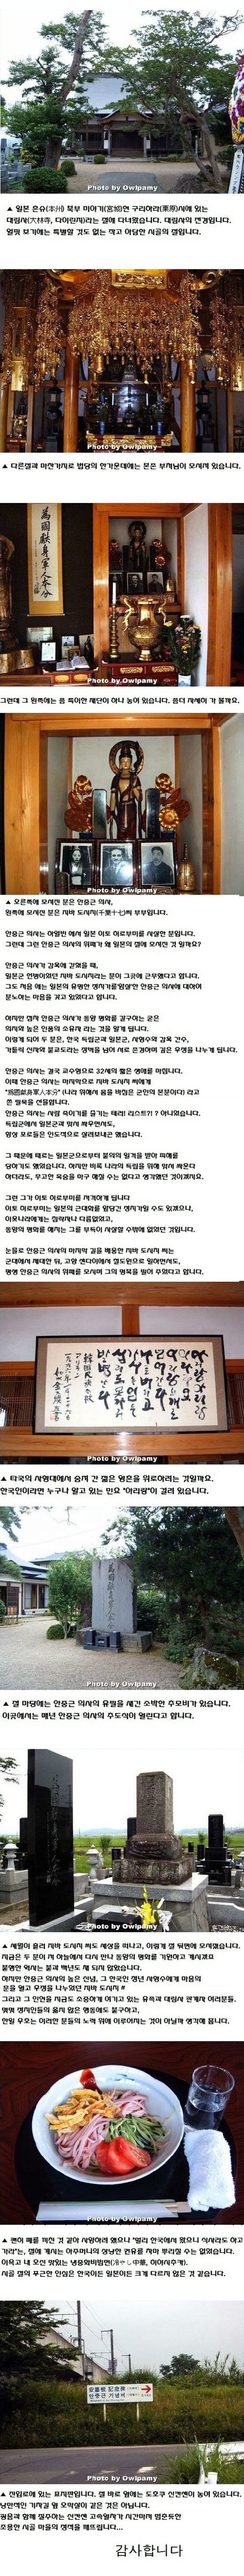 Photo by Owlpamy
▲ 일본 혼슈(本州) 북부 미야기(宮城)현 구리하라(栗原)시에 있는
대림사(大林寺, 다이린지)라는 절에 다녀왔습니다. 대림사의 전경입니다.
얼핏 보기에는 특별할 것도 없는 작고 아담한 시골의 절입니다.
Photo by Owlpamy
▲ 다른절과 마찬가지로 법당의 한가운데에는 본존 부처님이 모셔져 있습니다.
爲國獻身軍人本分
Photo by Owlpamy
그런데 그 왼쪽에는 좀 특이한 재단이 하나 놓여 있습니다. 좀더 자세히 가 볼까요.
Photo by Owlpamy
▲ 오른쪽에 모셔진 분은 안중근 의사,
왼쪽에 모셔진 분은 지바 도시치(千葉十七)씨 부부입니다.
안중근 의사는 하얼빈 에서 일본 이토 히로부미를 사살한 분입니다.
그런데 그런 안중근 의사의 위패가 왜 일본의 절에 모셔진 것 일까요?
안중근 의사가 감옥에 갇혔을 때,
일본군 헌병이었던 지바 도시치라는 분이 그곳에 근무했다고 합니다.
그도 처음 에는 일본의 유명한 정치가를암살한 안중근 의사에 대하여
분노하는 마음을 갖고 있었다고 합니다.
하지만 점차 안중근 의사가 동양 평화를 갈구하는 굳은
의지와 높은 인품의 소유자 라는 것을 알게 됩니다.
이렇게 되어 두 분은, 한국 독립군과 일본군, 사형수와 감옥 간수,
가톨릭 신자와 불교도라는 장벽을 넘어 서로 존경하며 깊은 우정을 나누게 됩니다.
안중근 의사는 결국 교수형으로 32세의 짧은 생애를 마칩니다.
이때 안중근 의사는 마지막으로 지바 도시치 씨에게
"爲國獻身軍人本分" (나라 위해서 몸을 바침은 군인의 본분이다) 라고
쓴 필묵을 선물합니다.
안중근 의사는 사람 죽이기를 즐기는 테러! 리스트?! ? 아니었습니다.
독립군에서 일본군과 맞서 싸우면서도,
항상 포로들은 인도적으로 살려보내곤 했습니다.
그 때문에 때로는 일본군으로부터 불의의 일격을 받아 피해를
당하기도 했었습니다. 하지만 비록 나라의 독립을 위해 맞서 싸운다
하더라도, 무고한 목숨을 마구 해칠 수는 없다고 생각했던 것이겠지요.
그런 그가 이토 히로부미를 저격하게 됩니다
이토 히로부미는 일본의 근대화를 앞당긴 정치가일 수도 있겠으나,
이웃나라에게는 침략자나 다름없었고,
동양의 평화를 해치는 그를 부득이 사살할 수밖에 없었던 것입니다.
눈물로 안중근 의사의 마지막 길을 배웅한 지바 도시치 씨는
군대에서 제대한 뒤, 고향 센다이에서 철도원으로 일하면서도,
평생 안중근 의사의 위패를 모시며 그의 명복을 빌어 주었다고 합니다.
Photo by Owlpamy
▲ 타국의 사형대에서 숨져 간 젊은 영혼을 위로하려는 것일까요.
한국인이라면 누구나 알고 있는 민요 "아리랑"이 걸려 있습니다.
爲國獻身軍人本分
Photo by Owlpamy
▲ 절 마당에는 안중근 의사의 유필을 새긴 소박한 추모비가 있습니다.
이곳에서는 매년 안중근 의사의 추도식이 열린다고 합니다.
Photo by Owlpamy
▲ 세월이 흘러 지바 도시치 씨도 세상을 떠나고, 이렇게 절 뒷편에 모셔졌습니다.
지금은 두 분이 저 하늘에서 다시 만나 동양의 평화를 기원하고 계시겠죠
불행한 역사는 불과 백년도 채 되지 않았습니다.
하지만 안중근 의사의 높은 신념, 그 한국인 청년 사형수에게 마음의
문을 열고 우정을 나누었던 지바 도시치 씨
그리고 그 인연을 지금도 소중하게 여기고 있는 유족과 대림사 관계자 여러분들.
몇몇 정치인들의 옳지 않은 행동에도 불구하고,
한일 우호는 이러한 분들의 노력 위에 이루어지는 것이 아닐까 생각해 봅니다.
Photo by Owlpamy
▲ 괜히 폐를 끼친 것 같아 사양하려 했으나 "멀리 한국에서 왔으니 식사라도 하고
가라"는, 절에 계시는 아주머니의 상냥한 권유를 차마 뿌리칠 수는 없었습니다.
이윽고 내 오신 맛있는 냉중화비빔면(冷やし中華, 히야시추카).
시골 절의 푸근한 인심은 한국이든 일본이든 크게 다르지 않은 것 같습니다.
안중근 기념비
Photo by Owlpamy
▲ 진입로에 있는 표지판입니다. 절 바로 옆에는 도호쿠 신칸센이 놓여 있습니다.
낭만적인 기차길 옆 오막살이 같은 것은 아닙니다.
굉음과 함께 질주하는 신칸센 고속열차가 시간마저 멈춘듯한
조용한 시골 마을의 정적을 깨뜨립니다...
감사합니다